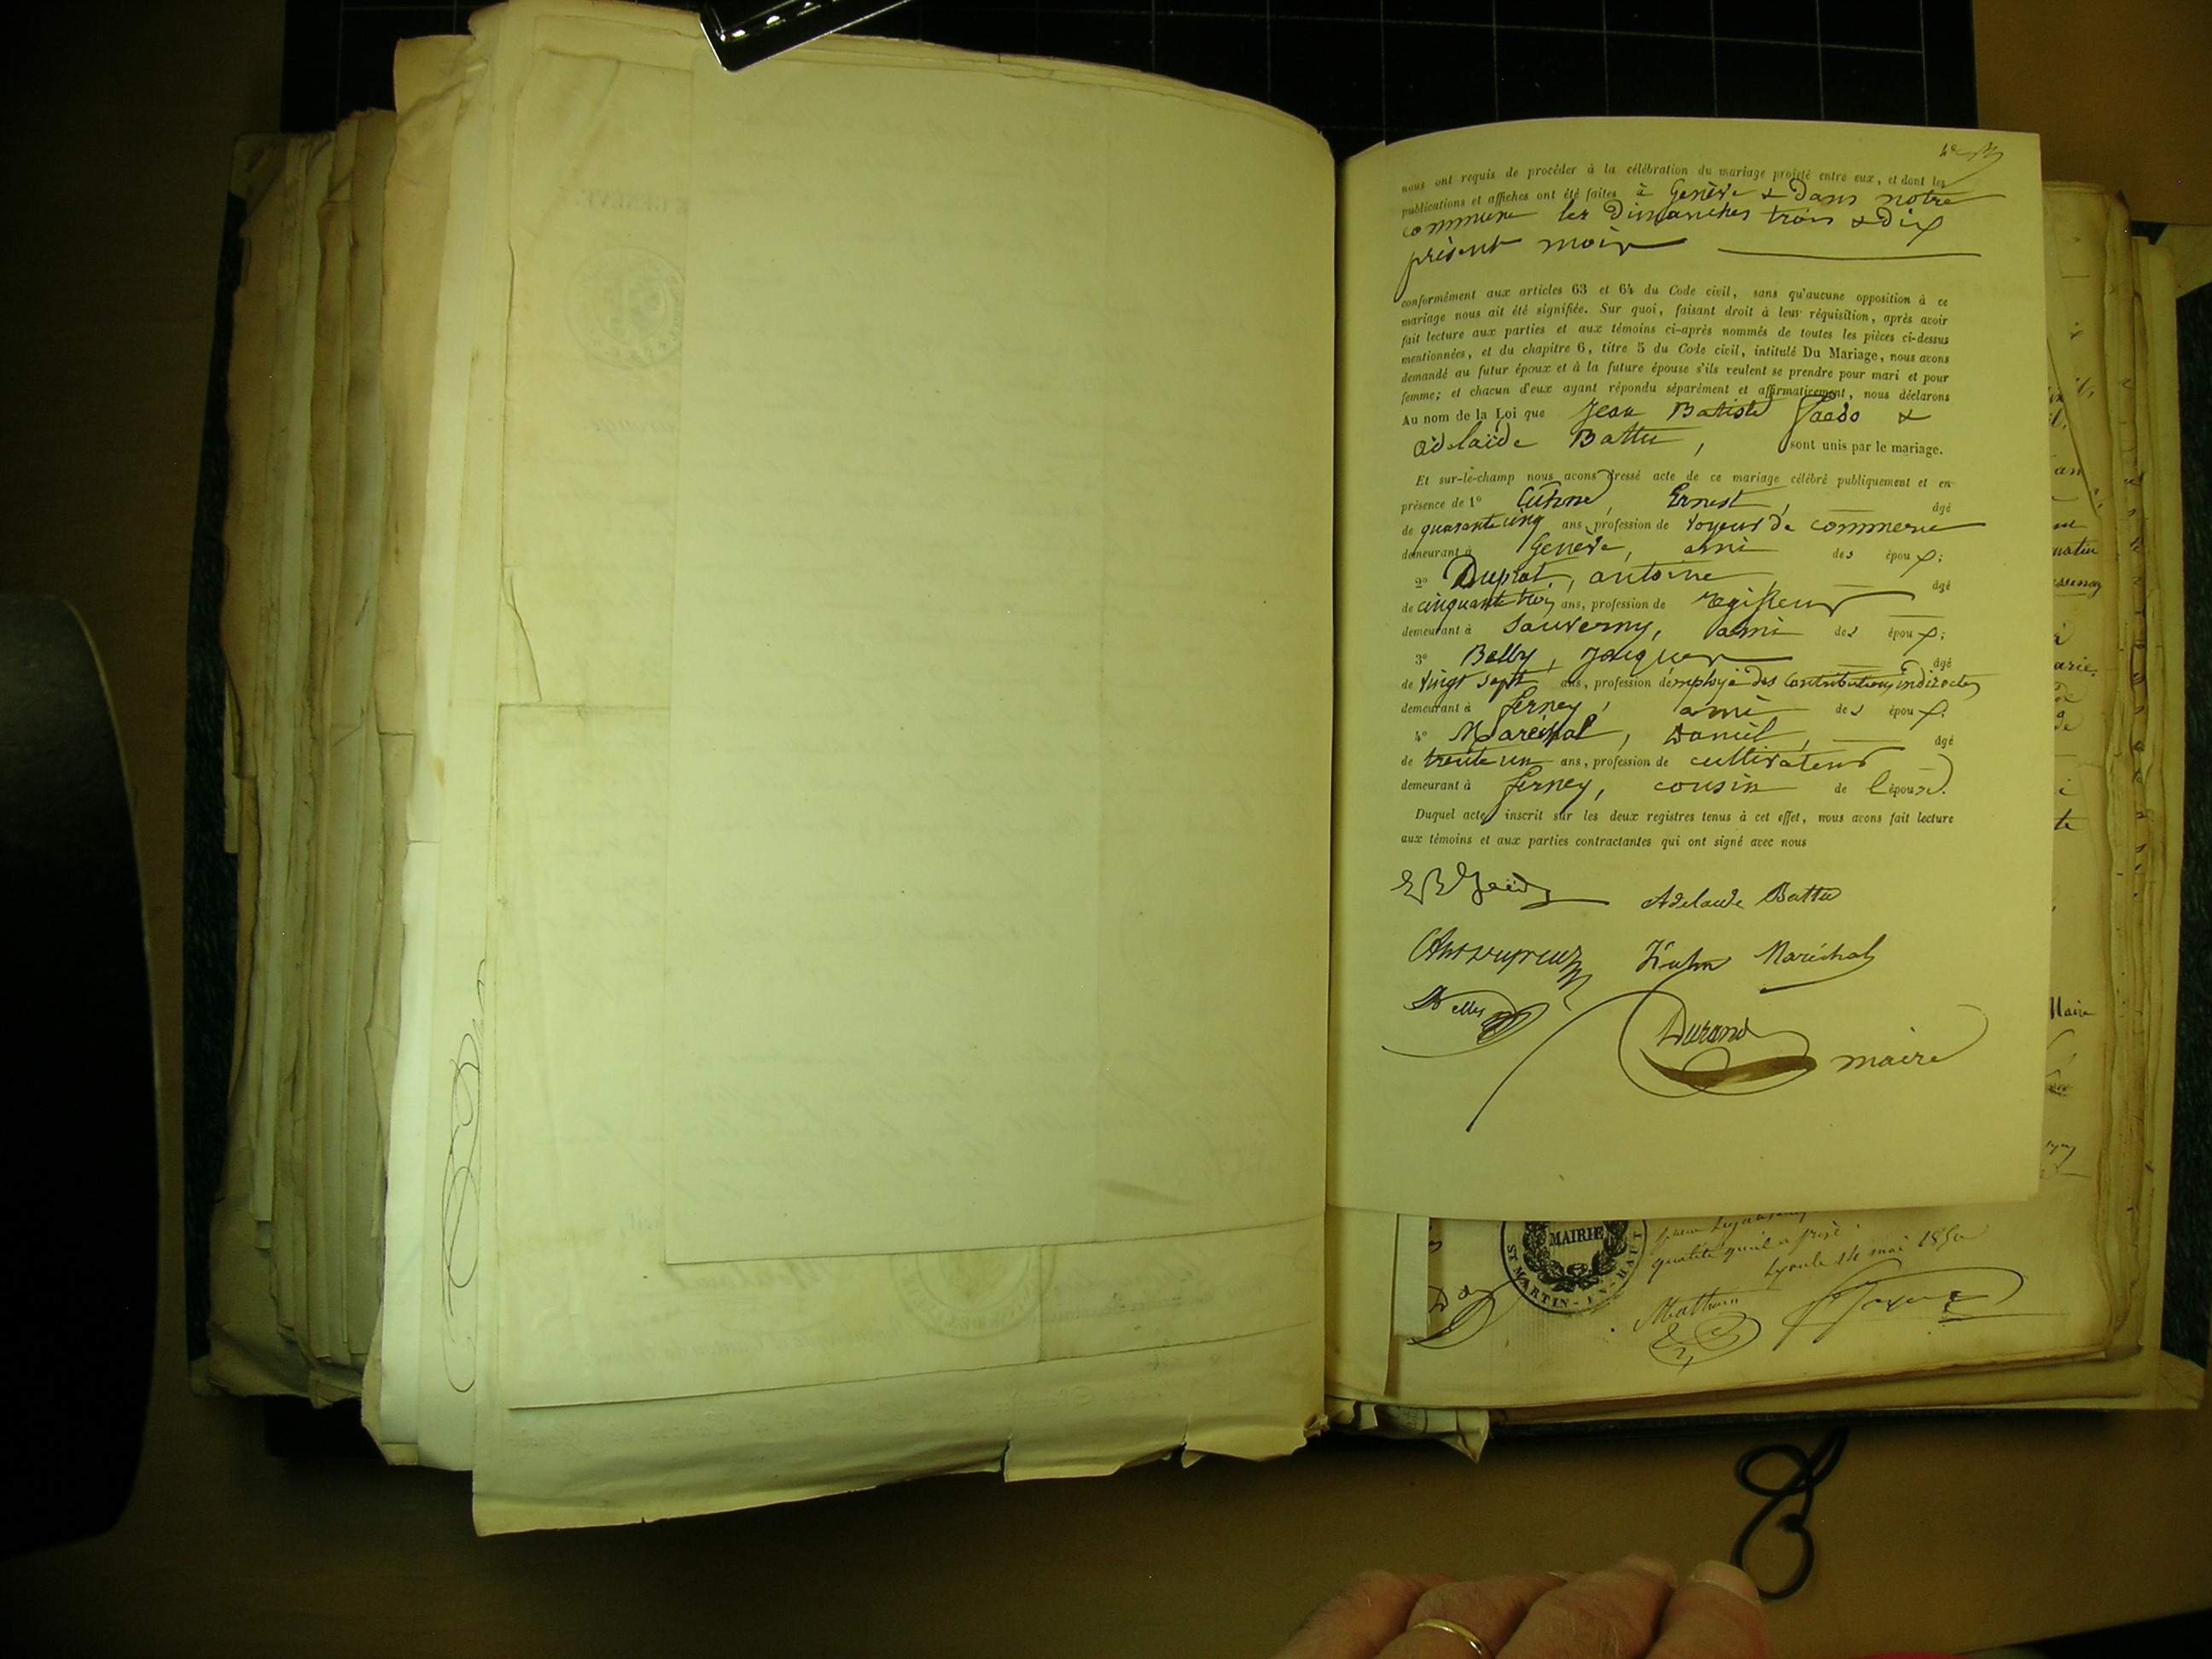 nous ont requis de procéder à la célébration du mariage projeté entre eux, et dont les
publications et affiches ont été faites à Genève & Dans notre
commune les Dimanches trois & dix
présent mois
conformément aux articles 63 et 64 du Code civil, sans qu'aucune opposition à ce
mariage nous ait été signifiée. Sur quoi, faisant droit à leur réquisition, après avoir
fait lecture aux parties et aux témoins ci-après nommés de toutes les pièces ci-dessus
mentionnées, et du chapitre 6, titre 5 du Code civil, intitulé Du Mariage, nous avons
demandé au futur époux et à la future épouse s'ils veulent se prendre pour mari et pour
femme; et chacun d'eux ayant répondu séparément et affirmativement, nous déclarons
Au nom de la Loi que Jean Batiste &
Adelaïde Battu, sont unis par le mariage.
Et sur-le-champ nous avons dressé acte de ce mariage célébré publiquement et en
présence de 1° Ernest, âgé
de quarante cinq ans, profession de Voyeur de commerce
demeurant à Genève, ami des époux;
2° Duprat, antoine âgé
de cinquante trois ans, profession de régisseur
demeurant à Sauverny, ami des époux;
3° Belly, Jacques âgé
de vingt sept ans, profession d'employé des Contributions indirectes
demeurant à ferney, ami des époux.
4° Maréchal, Daniel, âgé
de trente un ans, profession de cultivateur
demeurant à ferney, cousin de l'épouse.
Duquel acte, inscrit sur les deux registres tenus à cet effet, nous avons fait lecture
aux témoins et aux parties contractantes qui ont signé avec nous
Adelaïde Battu
Kuhn Maréchal
Belly
Durand maire
MAIRIE
ST MARTIN-EN-HAUT
qualité qu'il a prise
Lyon le 14 mai 1850
Mathieu
Maire